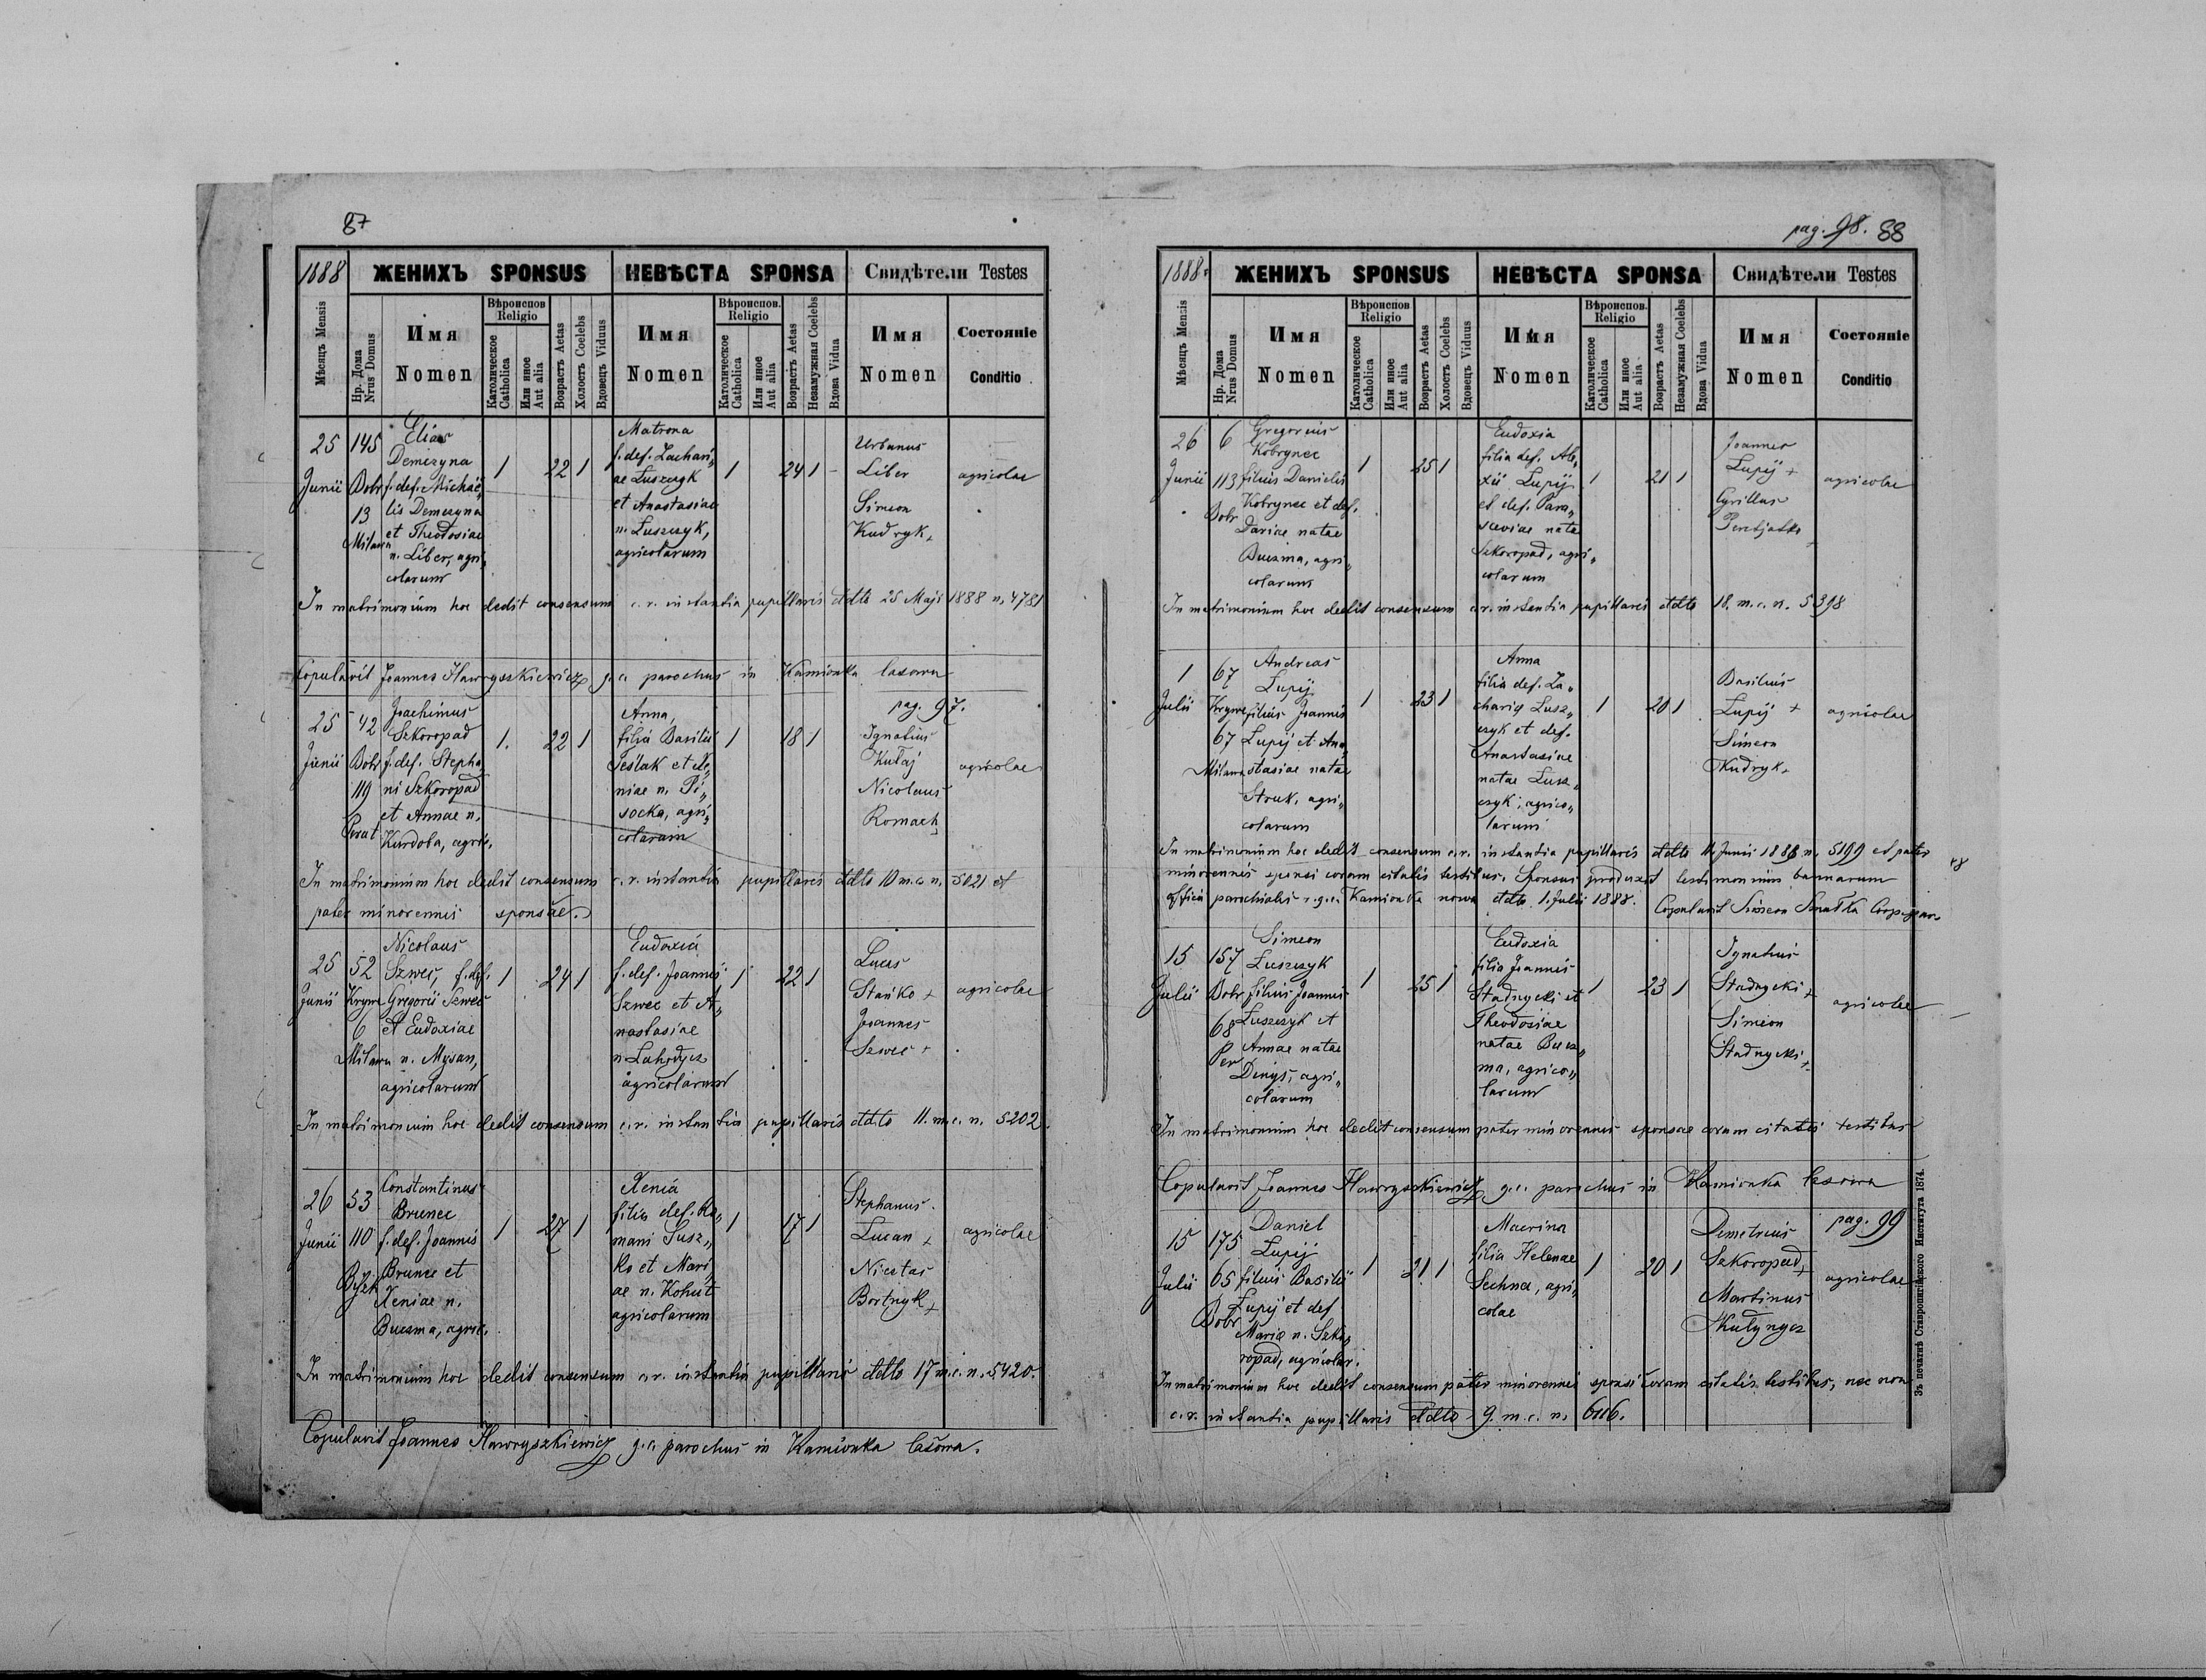 87
1888 ЖЕНИХЪ SPONSUS НЕВѢСТА SPONSA Свидѣтели Testes
Мѣсяцъ Mensis
Нр. Дома Nrus Domus
Имя Nomen
Вѣроиспов Religio
Католическое Catholica
Или иное Aut alia
Возрастъ Aetas
Холостъ Coelebs
Вдовецъ Viduus
Имя Nomen
Вѣроиспов. Religio
Католическое Catholica
Или иное Aut alia
Возрастъ Aetas
Незамужная Coelebs
Вдова Vidua
Имя Nomen
Состояніе Conditio
25 Junii
145 Bobr 13 Milawa
Elias
Demczyna
f. def. Michaë„
lis Demczyna
et Theodosiae
n. Liber, agri„
colarum
1 22 1
Matrona
f. def. Zachari„
ae Luszczyk
et Anastasiae
n. Luszczyk,
agricolarum
1 24 1
Urbanus
Liber
Simeon
Kudryk +
agricolae
In matrimonium hoc dedit consensum c. r. instantia pupillaris ddto 25 Maji 1888 n. 4781
Copulavit Joannes Hawryszkiewicz g. c. parochus in Kamionka lasowa
pag. 97.
25 Junii
42 Bobr 119 Perat
Joachimus
Szkoropad
f. def. Stepha
ni Szkoropad
et Annae n.
Kurdoba, agric.
1. 22 1
Anna,
filia Basilii
Seślak et Xe„
niae n. Pi„
socka, agri„
colarum
1 18 1
Ignatius
Kułaj
Nicolaus
Romach
agricolae
In matrimonium hoc dedit consensum c. r. instantia pupillaris ddto 10 m. c. n. 5021 et
pater minorennis sponsae.
25 Junii
52 Krywe 6 Milawa
Nicolaus
Szwec, f. def.
Gregorii Szwec
et Eudoxiae
n. Mysan,
agricolarum
1 24 1
Eudoxia
f. def. Joannis
Szwec et A„
nastasiae
n. Lahodycz
agricolarum
1 22 1
Lucas
Stańko +
Joannes
Szwec +
agricolae
In matrimonium hoc dedit consensum c. r. instantia pupillaris ddto 11. m. c. n. 5202.
26 Junii
53 110
Constantinus
Brunec
f. def. Joannis
Brunec et
Xeniae n.
Buczma, agric.
1 27 1
Xenia
filia def. Ro„
mani Susz„
ko et Mari„
ae n. Kohut
agricolarum
1 17 1
Stephanus
Lucan +
Nicetas
Bortnyk +
agricolae
In matrimonium hoc dedit consensum c. r. instantia pupillaris ddto 17 m. c. n. 5420.
Copulavit Joannes Hawryszkiewicz g. c. parochus in Kamionka lasowa.
pag. 98. 88
1888. ЖЕНИХЪ SPONSUS НЕВѢСТА SPONSA Свидѣтели Testes
Мѣсяцъ Mensis
Нр. Дома Nrus Domus
Имя Nomen
Вѣроиспов Religio
Католическое Catholica
Или иное Aut alia
Возрастъ Aetas
Холостъ Coelebs
Вдовецъ Viduus
Имя Nomen
Вѣроиспов. Religio
Католическое Catholica
Или иное Aut alia
Возрастъ Aetas
Незамужная Coelebs
Вдова Vidua
Имя Nomen
Состояніе Conditio
26 Junii
6 113 Bobr
Gregorius
Kobrynec
filius Danielis
Kobrynec et def.
Dariae natae
Buczma, agri„
colarum
1 25 1
Eudoxia
filia def. Ale„
xii Lupij
et def. Para„
sceviae nata
Szkoropad, agri„
colarum
1 21 1
Joannes
Lupij +
Cyrillus
Peretjatko +
agricolae
In matrimonium hoc dedit consensum c. r. instantia pupillaris ddto 18. m. c. n. 5398
1 Julii
67 Krywe 67 Milawa
Andreas
Lupij
filius Joannis
Lupij et Ana„
stasiae natae
Struk, agri„
colarum
1 23 1
Anna
filia def. Za„
charia Lusz„
czyk et def.
Anastasiae
natae Lusz„
czyk, agrico„
larum
1 20 1
Basilius
Lupij +
Simeon
Kudryk +
agricolae
In matrimonium hoc dedit consensum c. r. instantia pupillaris ddto 11. Junii 1888 n. 5199 et pater
minorennis sponsi coram citatis testibus. Sponsus produxit testimonium bannorum
officii parochialis r. g. c. Kamionka nowa ddto 1. Julii 1888. Copulavit Simeon Smałka Coop. par.
15 Julii
157 Bobr 68 Per
Simeon
Łuszczyk
filius Joannis
Łuszczyk et
Annae natae
Dinys, agri„
colarum
1 25 1
Eudoxia
filia Joannis
Stadnycki et
Theodosiae
natae Bucz„
ma, agrico„
larum
1 23 1
Ignatius
Stadnycki +
Simeon
Stadnycki +
agricolae
In matrimonium hoc dedit consensum pater minorennis sponsae coram citatis testibus
Copulavit Joannes Hawryszkiewicz g. c. parochus in Kamionka lasowa
pag. 99
15 Julii
175 65 Bobr
Daniel
Lupij
filius Basilii
Lupij et def
Maria n. Szko„
ropad, agricolar.
1 21 1
Macrina
filia Helenae
Sechna, agri„
colae
1 20 1
Demetrius
Szkoropad,
Martinus
Kułynycz
agricolae
In matrimonium hoc dedit consensum pater minorennis sponsi coram citatis testibus, nec non
c. r. instantia pupillaris ddto 9. m. c. n. 6116.
Зъ печатнѣ Ставропигійского Института 1874.